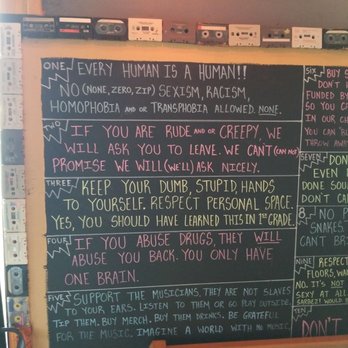 ONE, EVERY HUMAN IS A HUMAN!!
NO (NONE, ZERO, ZIP) SEXISM, RACISM,
HOMOPHOBIA AND OR TRANSPHOBIA ALLOWED. NONE.
TWO, IF YOU ARE RUDE AND OR CREEPY, WE
WILL ASK YOU TO LEAVE. WE CAN'T (CAN NOT)
PROMISE WE WILL (WE'LL) ASK NICELY.
THREE, KEEP YOUR DUMB, STUPID, HANDS
TO YOURSELF. RESPECT PERSONAL SPACE.
YES, YOU SHOULD HAVE LEARNED THIS IN 1ST GRADE.
FOUR, IF YOU ABUSE DRUGS, THEY WILL
ABUSE YOU BACK. YOU ONLY HAVE
ONE BRAIN.
FIVE, SUPPORT THE MUSICIANS. THEY ARE NOT SLAVES
TO YOUR EARS. LISTEN TO THEM OR GO PLAY OUTSIDE.
TIP THEM. BUY MERCH. BUY THEM DRINKS. BE GRATEFUL
FOR THE MUSIC. IMAGINE A WORLD WITH NO MUSIC.
SIX, BUY
DON'T
FUNDED BY
SO YOU CA
IN OUR CH
YOU CAN BU
THROW AWA
SEVEN, DON'T
EVEN
DONE SO
DON'T CA
8. NO P
SNAKES.
CAN'T BRI
NINE, RESPECT
FLOORS, WA
NO. IT'S NOT
SEXY AT ALL
TEN,
DON'T